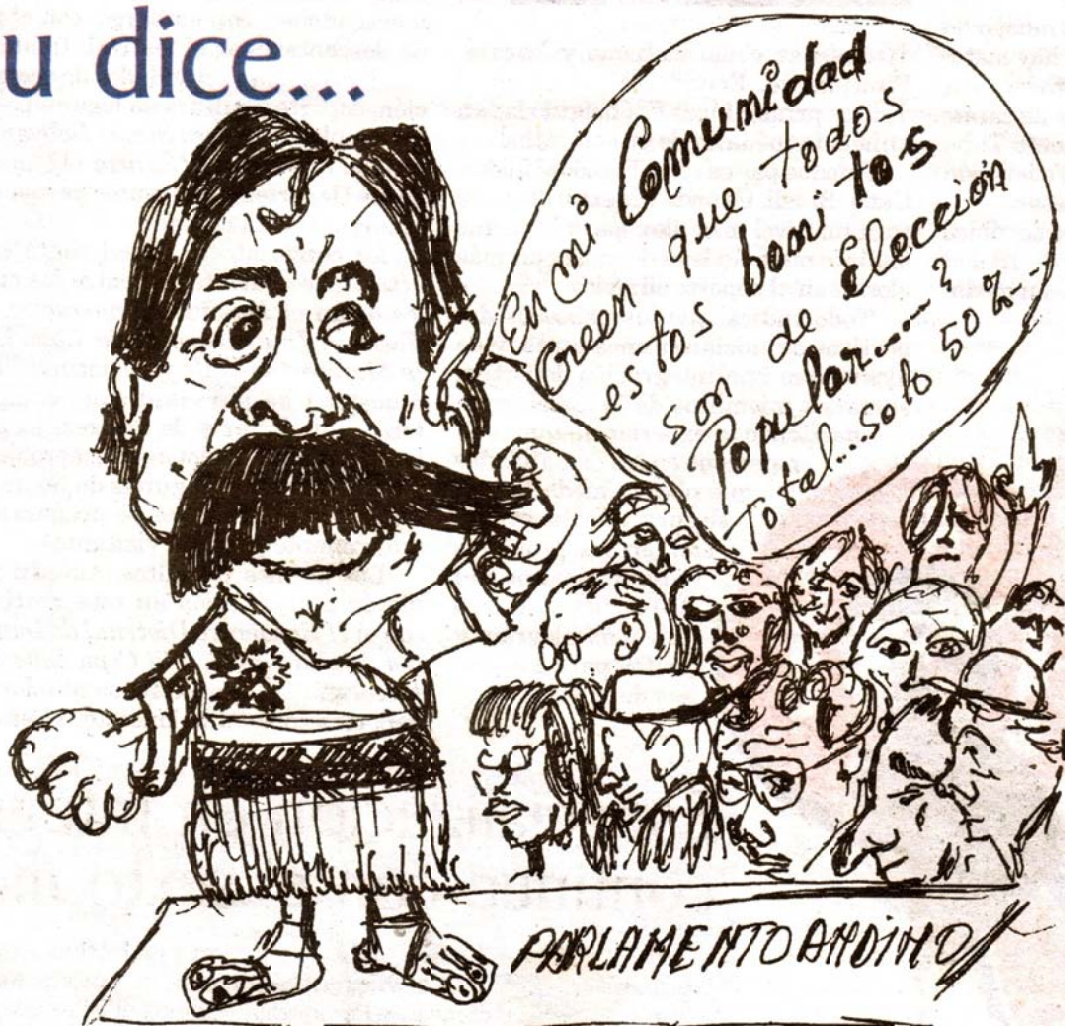 u dice...
En mi Comunidad
Creen que todos
estos boavitos
son de elección
Popular.....?
Tota!...solo 50%.
PARLAMENTO ANDINO